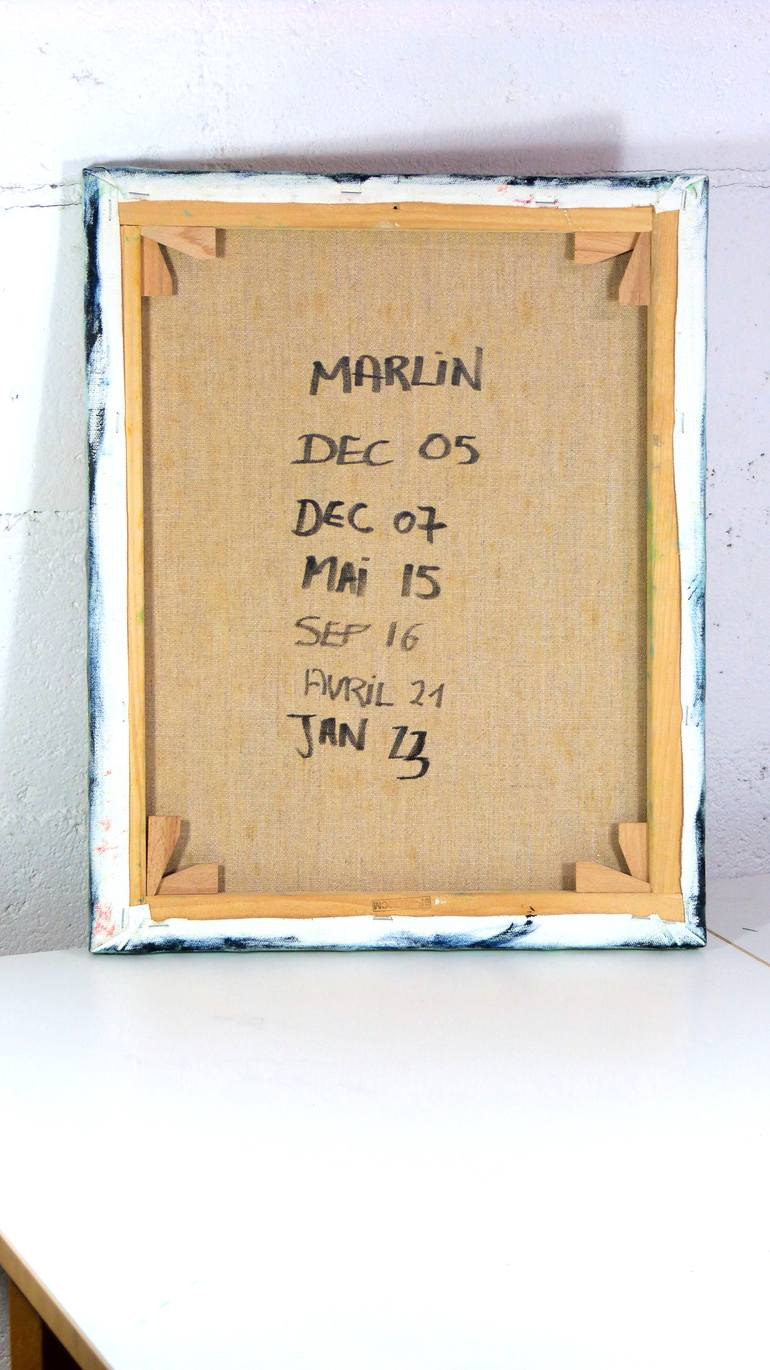 MARLiN
DEC 05
DEC 07
MAi 15
SEP 16
AVRiL 21
JAN 23
CM